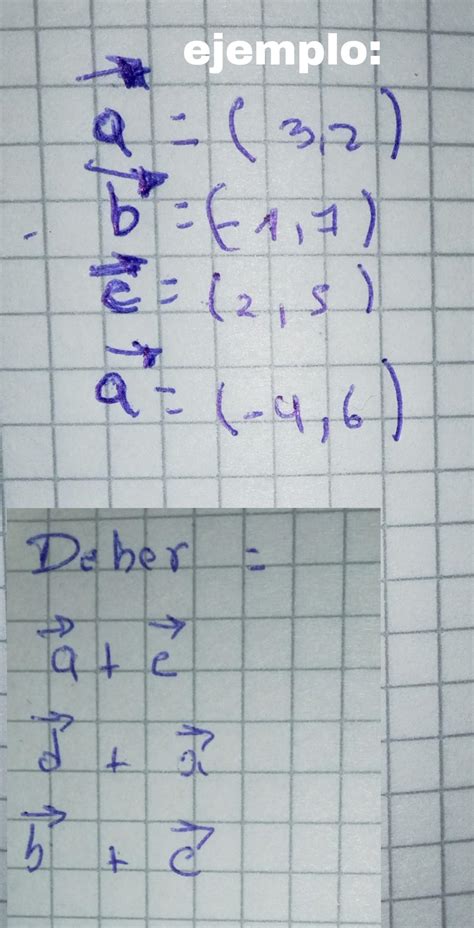 ejemplo:
a⃗ = (3,2)
b⃗ = (-1,7)
c⃗ = (2,5)
a⃗ = (-4,6)
Deber =
a⃗ + c⃗
d⃗ + a⃗
b⃗ + c⃗